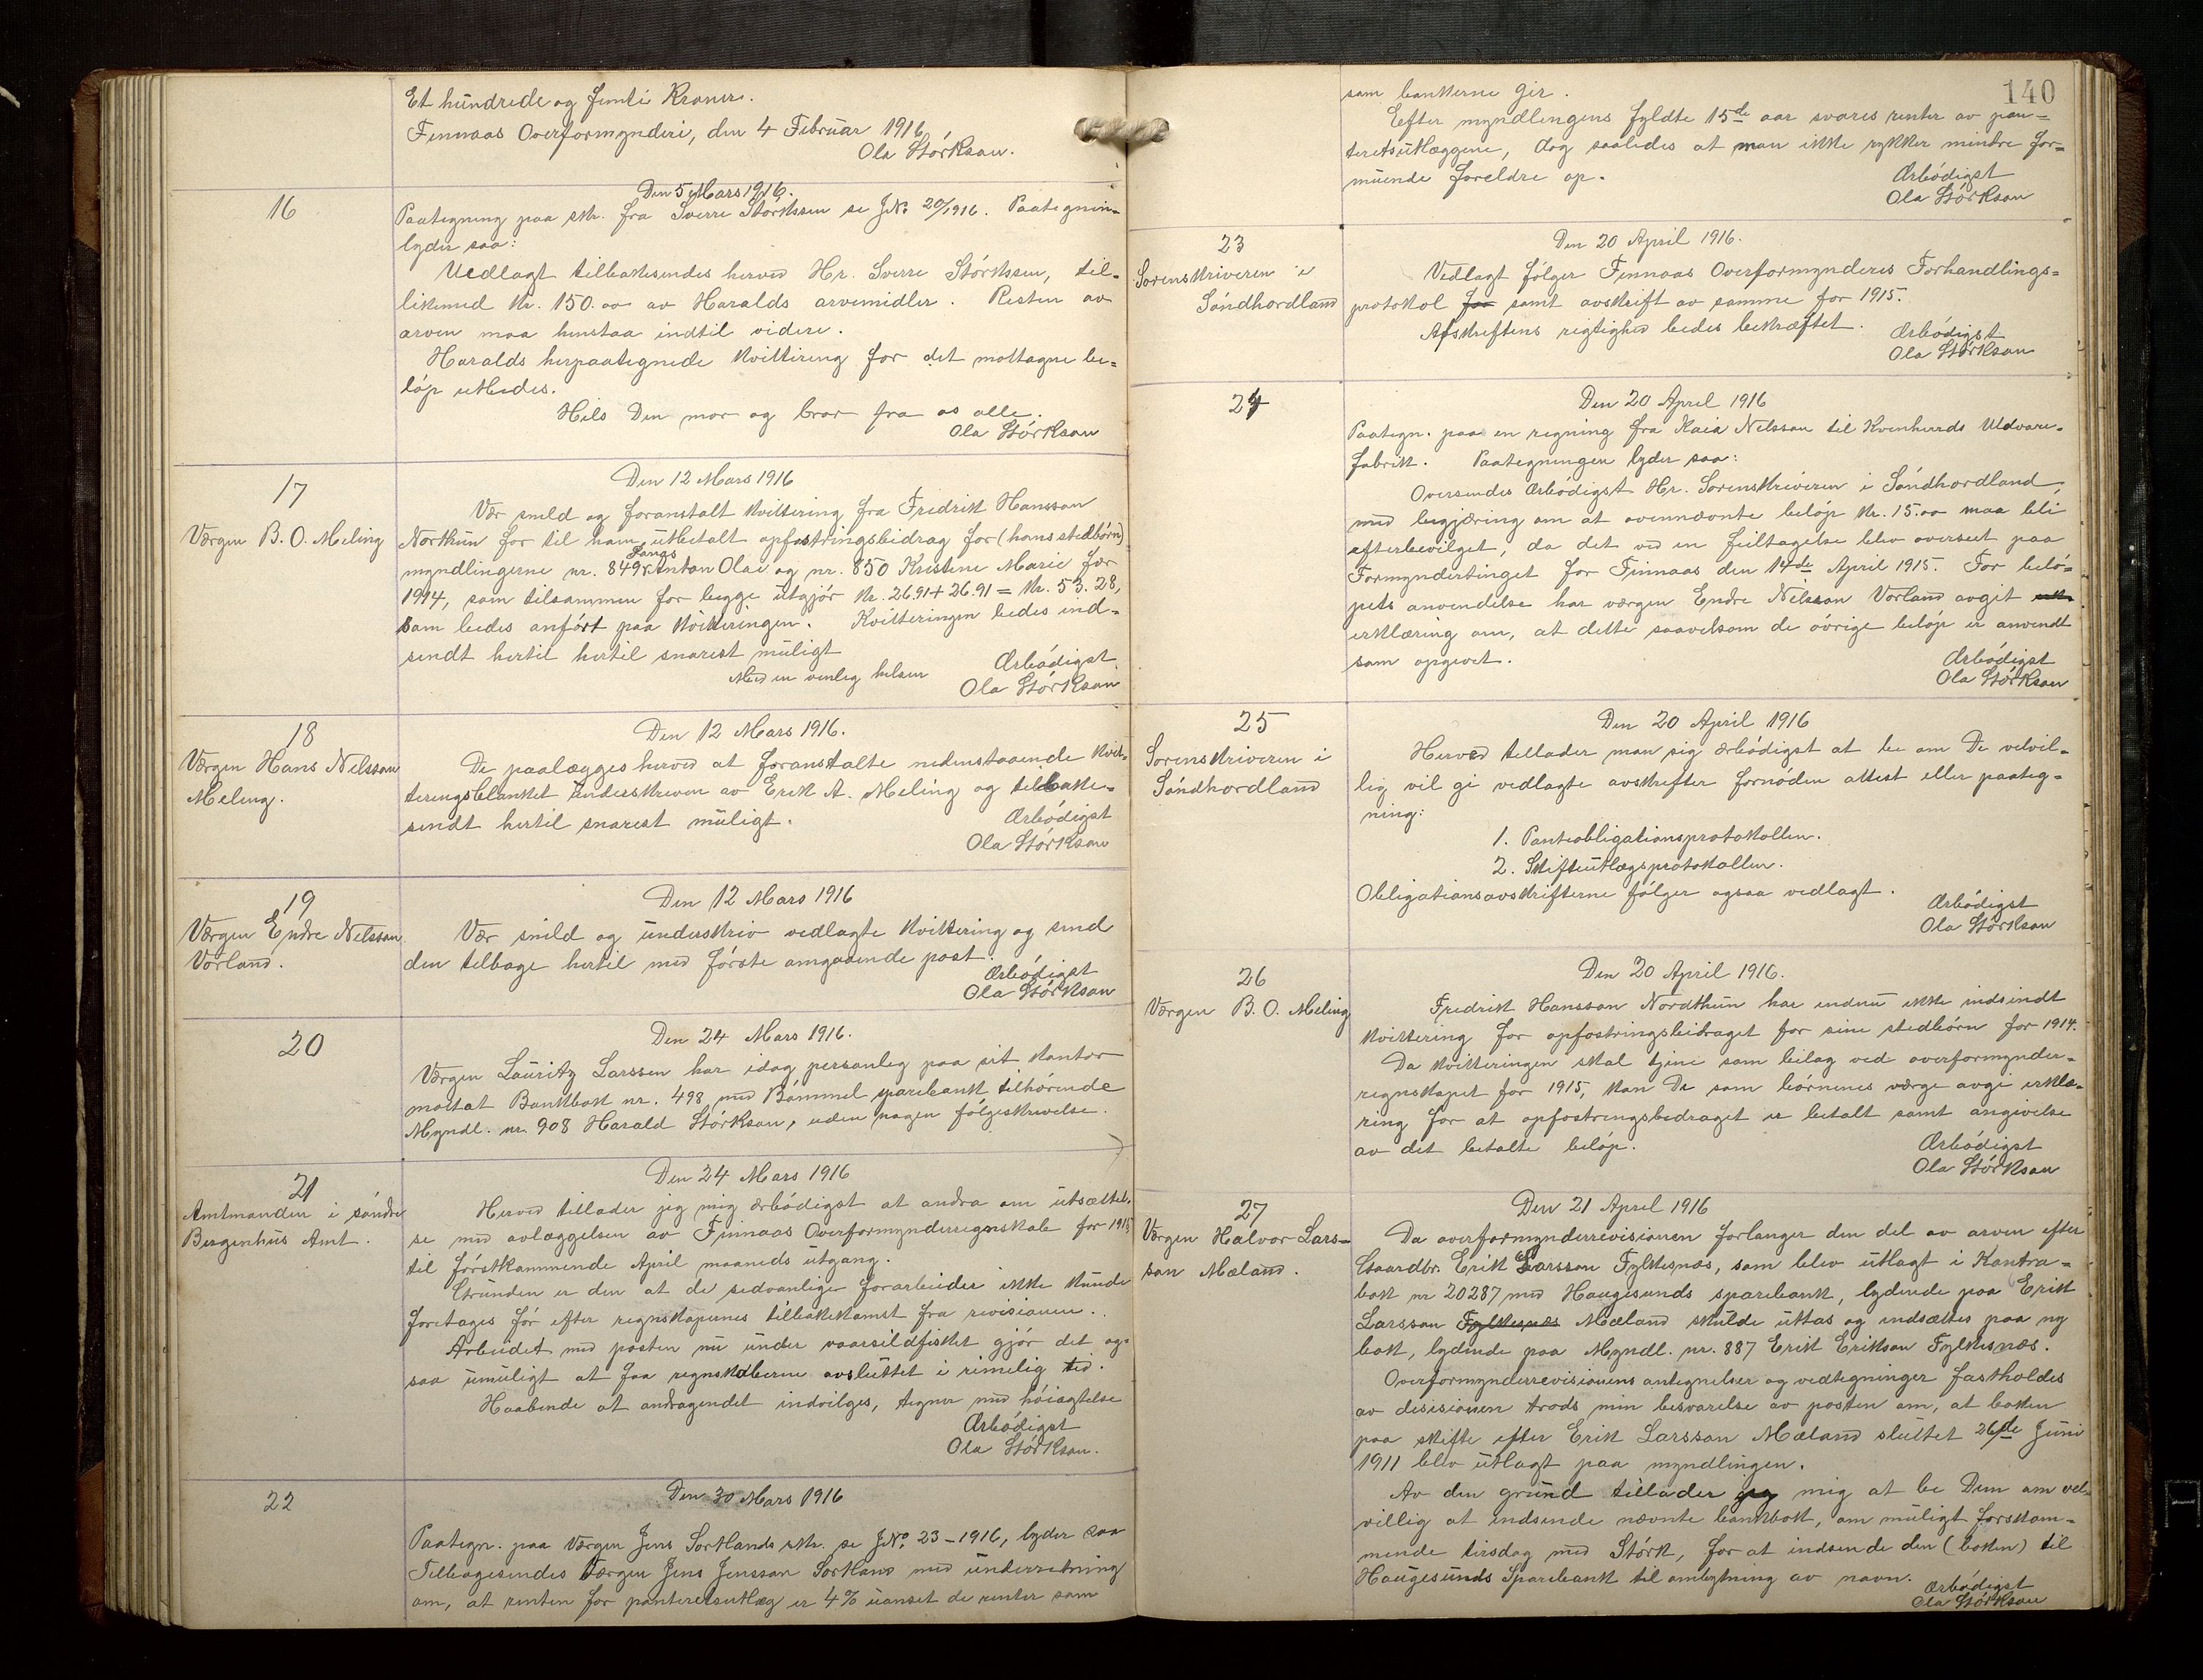 Et hundrede og femti Kroner.
Finnaas Overformynderi, den 4 Februar 1916
Ola Størkson.
16
Den 5 Mars 1916.
Paategning paa skr. fra Sverre Størksen se J.No 20/1916. Paategnin-
lyder saa:
Vedlagt tilbakesendes herved Hr. Sverre Størksen, til-
likemed Kr. 150.00 av Haralds arvemidler. Resten av
arven maa henstaa indtil videre.
Haralds herpaategnede Kvittering for det mottagne be-
løp utbedes.
Hils Din mor og bror fra os alle.
Ola Størkson
17
Den 12 Mars 1916
Værgen B. O. Meling
Vær snild og foranstalt Kvittering fra Fredrik Hansson
Northun for til ham utbetalt opfostringsbidrag for (hans stedbørn)
Langs
myndlingerne nr. 849 Anton Olai og nr. 850 Kristine Marie for
1914, som tilsammen for begge utgjør Kr. 26.91 + 26.91 = Kr. 53.28,
som bedes anført paa Kvitteringen. Kvitteringen bedes ind-
sendt hertil hertil snarest muligt
Ærbødigst
Med en venleg helsen
Ola Størkson
18
Den 12 Mars 1916.
Værgen Hans Nelsson
Meling.
De paalægges herved at foranstalte nedenstaaende Kvit-
teringsblanket underskreven av Erik A. Meling og tilbake-
sendt hertil snarest muligt.
Ærbødigst
Ola Størkson
19
Den 12 Mars 1916
Værgen Endre Nelsson
Vorland.
Vær snild og underskriv vedlagte Kvittering og send
den tilbage hertil med første omgaaende post.
Ærbødigst
Ola Størkson
20
Den 24 Mars 1916.
Værgen Lauritz Larssen har idag personleg paa sit Kontor
mottat Bankbok nr. 498 med Bømmel sparebank tilhørende
Myndl. nr. 908 Harald Størkson, uden nogen følgeskrivelse.
21
Den 24 Mars 1916
Amtmanden i søndre
Bergenhus Amt.
Herved tillader jeg mig ærbødigst at andra om utsættel-
se med avlæggelsen av Finnaas Overformynderregnskab for 1915
til førstkommende April maaneds utgang.
Grunden er den at de sedvanlige forarbeider ikke kunde
foretages før efter regnskapernes tilbakekomst fra revisionen.
Arbeidet med posten nu under vaarsildfisket gjør det og-
saa umuligt at faa regnskaberne avsluttet i rimelig tid.
Haabende at andragendet indvilges, tegner med høiagtelse
Ærbødigst
Ola Størkson.
22
Den 30 Mars 1916
Paategn. paa Værgen Jens Sortlands skr. se J.No. 23-1916, lyder saa
Tilbagesendes Værgen Jens Jensson Sortland med underretning
om, at renten for panteretsutlæg er 4% uanset de renter som
140
som bankerne gir.
Eefter myndlingens fyldte 15de aar svares renter av pan-
teretsutlæggene, dog saaledes at man ikke rykker mindre for-
muende foreldre op.
Ærbødigst
Ola Størkson
23
Den 20 April 1916.
Sorenskriveren i
Søndhordland
Vedlagt følger Finnaas Overformynderes Forhandlings-
protokol for samt avskrift av samme for 1915.
Afskriftens rigtighed bedes bekræftet.
Ærbødigst
Ola Størkson
24
Den 20 April 1916
Paategn. paa en regning fra Kaia Nelsson til Kvinherrds Uldvare-
fabrik. Paategningen lyder saa:
Oversendes ærbødigst Hr. Sorenskriveren i Søndhordland,
med begjæring om at ovennævnte beløp Kr. 15.00 maa bli
efterbevilget, da det ved en feiltagelse blev overseet paa
Formyndertinget for Finnaas den 14de April 1915. For belø-
pets anvendelse har værgen Endre Nelsson Vorland avgit
erklæring om, at dette saavelsom de øvrige beløp er anvendt
som opgivet.
Ærbødigst
Ola Størkson
25
Den 20 April 1916
Sorenskriveren i
Søndhordland
Herved tillader man sig ærbødigst at be om De velvil-
lig vil gi vedlagte avskrifter fornøden attest eller paateg-
ning:
1. Panteobligationsprotokollen.
2. Skifteutlægsprotokollen.
Obligationsavskrifterne følger ogsaa vedlagt.
Ærbødigst
Ola Størkson
26
Den 20 April 1916.
Værgen B. O. Meling
Fredrik Hansson Nordthun har endnu ikke indsendt
Kvittering for opfostringsbeidraget for sine stedbørn for 1914.
Da Kvitteringen skal tjene som beilag ved overformynder-
regnskapet for 1915, kan De som børnenes værge avgi erklæ-
ring for at opfostringsbedraget er betalt samt angivelse
av det betalte beløp.
Ærbødigst
Ola Størkson
27
Den 21 April 1916
Værgen Halvor Lars-
son Mæland.
Da overformynderrevisionen forlanger den del av arven efter
Gaardbr. Erik Larsson Fylkesnæs, som blev utlagt i Kontra-
bok nr 20287 med Haugesunds sparebank, lydende paa Erik
Larsson Fylkesnæs Mæland skulde uttas og indsættes paa ny
bok, lydende paa Myndl. nr. 887 Erik Erikson Fylkesnæs.
Overformynderrevisionens antegnelser og vedtegninger fastholdes
av desisionen trods min besvarelse av posten om, at boken
paa skifte efter Erik Larsson Mæland sluttet 26de Juni
1911 blev utlagt paa myndlingen.
Av den grund tillader jeg mig at be Dem om vel-
villig at indsende nævnte bankbok, om muligt førskom-
mende tirsdag med Størk, for at indsende den (boken) til
Haugesunds Sparebank til ombytning av navn.
Ærbødigst
Ola Størkson